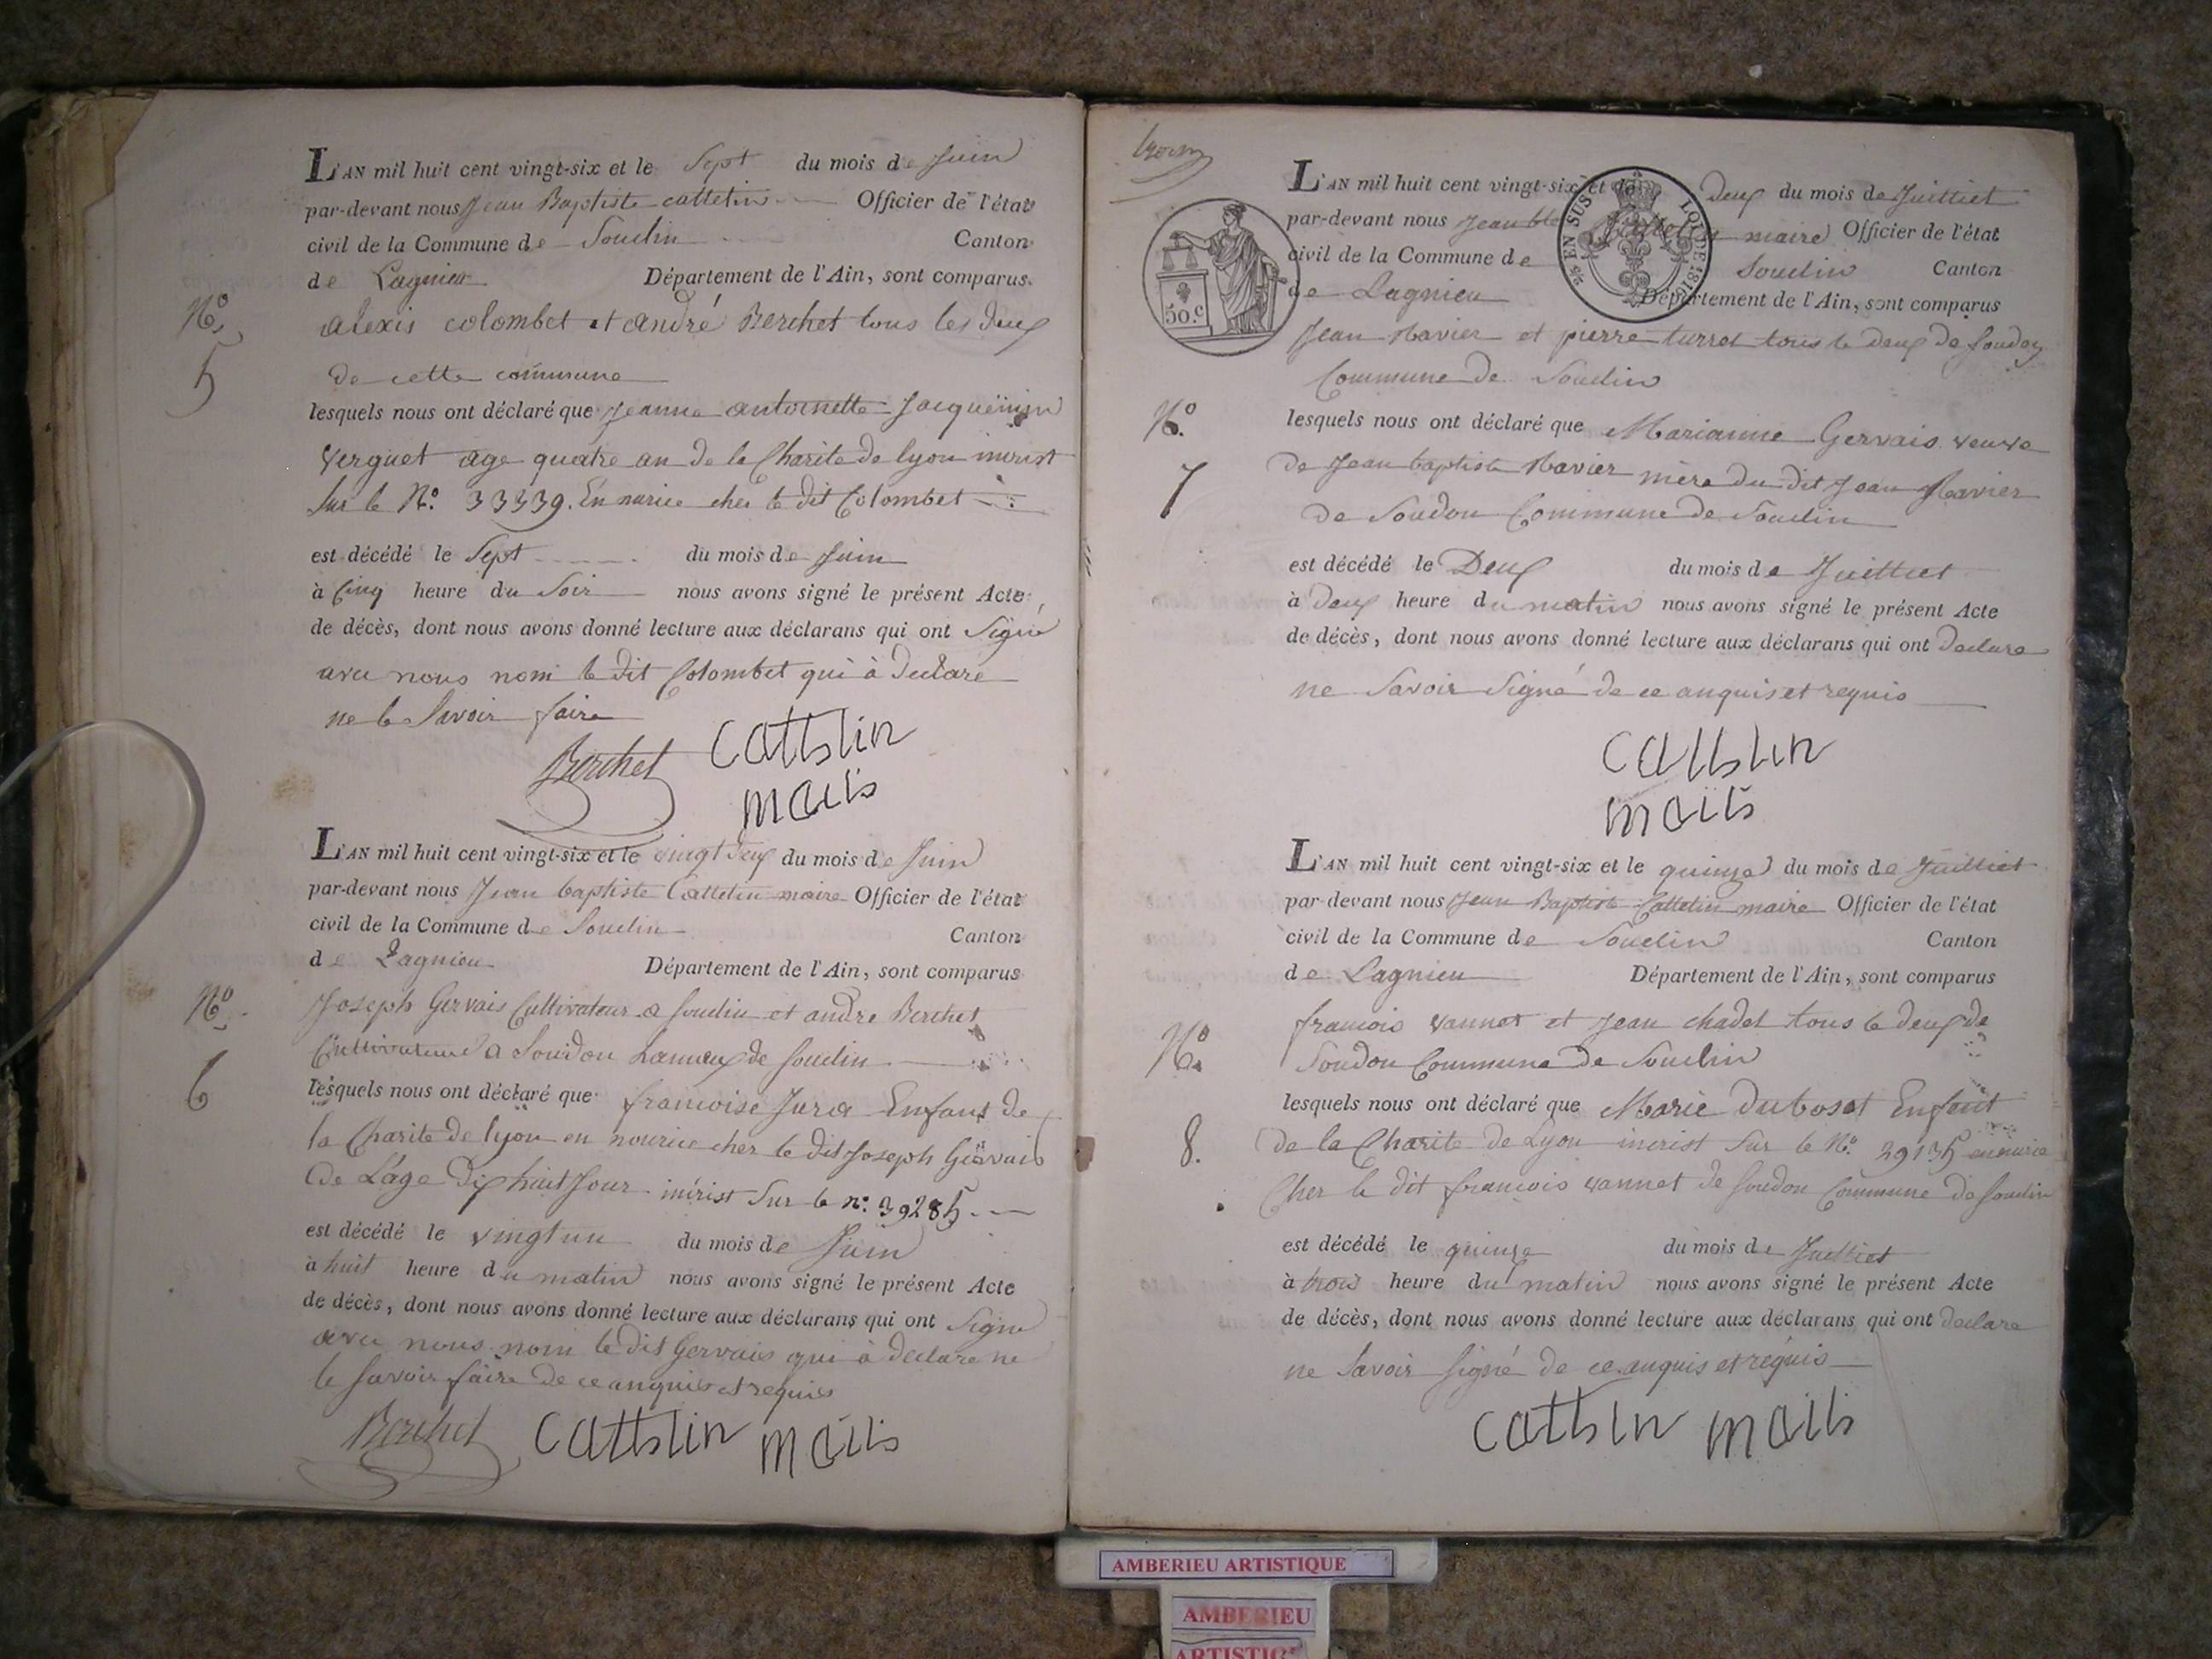 L'AN mil huit cent vingt-six et le Sept du mois de Juin
par-devant nous Jean Baptiste cattelin Officier de l'état
civil de la Commune de Souclin Canton
de Lagnieu Département de l'Ain, sont comparus
alexis colombet et andré Berchet tous les deux
N°
5
de cette commune
lesquels nous ont déclaré que Jeanne antoinette Jacquemin
Verguet age quatre an de la Charite de lyon inscrist
Sur le N° 33339. En nurice cher le dit Colombet
est décédé le Sept du mois de Juin
à Cinq heure du Soir nous avons signé le présent Acte
de décès, dont nous avons donné lecture aux déclarans qui ont Signé
avec nous nom le dit Colombet qui à declaré
ne le Savoir faire
Berchet Cattelin
maire
L'AN mil huit cent vingt-six et le vingt deux du mois de Juin
par-devant nous Jean baptiste Cattelin maire Officier de l'état
civil de la Commune de Souclin Canton
de Lagnieu Département de l'Ain, sont comparus
N°
Joseph Gervais Cultivateur a Souclin et andre Berchet
Cultivateur a Soudon hameux de Souclin
6
lesquels nous ont déclaré que francoise Jura Enfant de
la Charite de lyon en nourice cher le dit Joseph Gervais
De L'age Dix huit Jour inscrist Sur le n° 39285
est décédé le vingt un du mois de Juin
à huit heure du matin nous avons signé le présent Acte
de décès, dont nous avons donné lecture aux déclarans qui ont Signé
avec nous nom le dit Gervais qui à declare ne
le Savoir faire de ce anquis et requis
Berchet Cattelin maire
L'AN mil huit cent vingt-six et le Deux du mois de Juilliet
par-devant nous Jean maire Officier de l'état
civil de la Commune de Souclin Canton
50.c
25 EN SUS LOI DE 1816
de Lagnieu Département de l'Ain, sont comparus
Jean Ravier et pierre turret tous le deux de Soudon
Commune de Souclin
N°
7
lesquels nous ont déclaré que Marianne Gervais veuve
de Jean baptiste Ravier mère du dit Jean Ravier
de Soudon Commune de Souclin
est décédé le Deux du mois de Juilliet
à deux heure du matin nous avons signé le présent Acte
de décès, dont nous avons donné lecture aux déclarans qui ont declare
ne Savoir Signé de ce anquis et requis
Cattelin
maire
L'AN mil huit cent vingt-six et le quinze du mois de Juilliet
par-devant nous Jean Baptiste Cattelin maire Officier de l'état
civil de la Commune de Souclin Canton
de Lagnieu Département de l'Ain, sont comparus
N°
francois vannet et Jean chadel tous le deux de
Soudon Commune de Souclin
8.
lesquels nous ont déclaré que Marie dubosat Enfent
de la Charite de Lyon inscrist Sur le N° 39135 en nurice
Cher le dit francois vannet de Soudon Commune de Souclin
est décédé le quinze du mois de Juilliet
à trois heure du matin nous avons signé le présent Acte
de décès, dont nous avons donné lecture aux déclarans qui ont declare
ne Savoir Signé de ce anquis et requis
Cattelin maire
AMBERIEU ARTISTIQUE
AMBERIEU
ARTISTIQUE